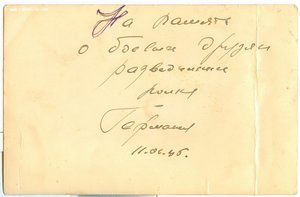 На память
о боевых друзьях
разведчиках
полка
Германия
11.06.46.